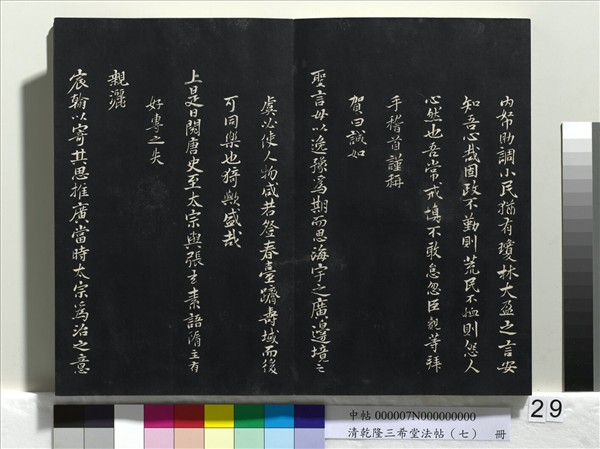 內帑助調小民猶有瓊林大盈之言安
知吾心哉固政不勤則荒民不恤則怨人
心然也吾常戒慎不敢怠忽臣觀等拜
手稽首謹稱
賀曰誠如
聖言毋以逸豫為期而思海宇之廣邊境之
虞必使人物咸若登春臺躋壽域而後
可同樂也猗歟盛哉
上是日閱唐史至太宗與張玄素語隋主有
好專之失
親灑
宸翰以寄其思推廣當時太宗為治之意
中帖 000007N000000000
清乾隆三希堂法帖（七） 冊
29